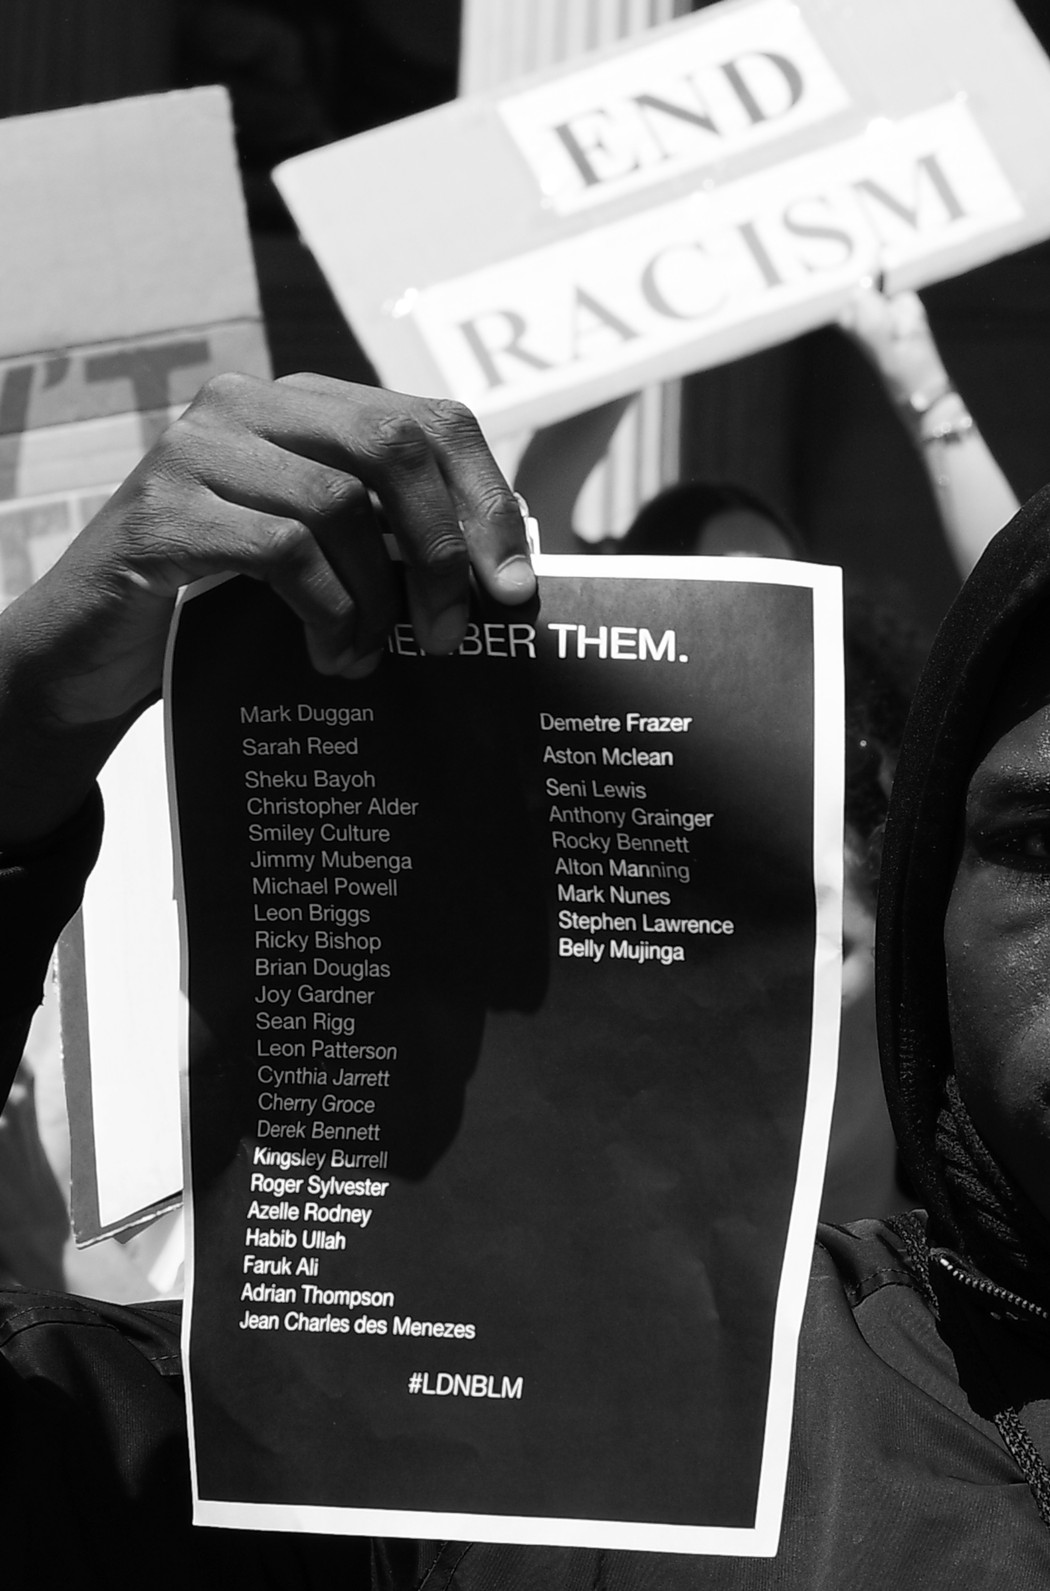 END
RACISM
'T
MEMBER THEM.
Mark Duggan
Sarah Reed
Sheku Bayoh
Christopher Alder
Smiley Culture
Jimmy Mubenga
Michael Powell
Leon Briggs
Ricky Bishop
Brian Douglas
Joy Gardner
Sean Rigg
Leon Patterson
Cynthia Jarrett
Cherry Groce
Derek Bennett
Kingsley Burrell
Roger Sylvester
Azelle Rodney
Habib Ullah
Faruk Ali
Adrian Thompson
Jean Charles des Menezes
Demetre Frazer
Aston Mclean
Seni Lewis
Anthony Grainger
Rocky Bennett
Alton Manning
Mark Nunes
Stephen Lawrence
Belly Mujinga
#LDNBLM